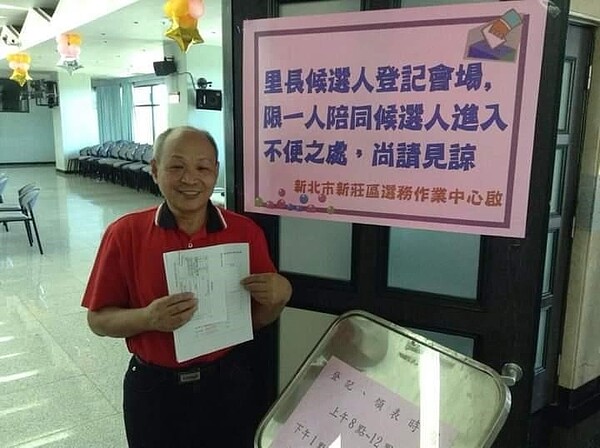 里長候選人登記會場，
限一人陪同候選人進入
不便之處，尚請見諒
新北市新莊區選務作業中心啟
登記、領表時
上午8點~12點
下午1點